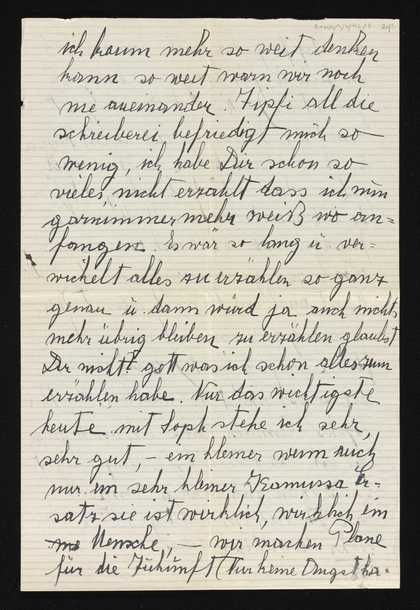 ich kaum mehr so weit denken
kann so weit warn wir noch
nie aueinander. Tipfi all die
schreiberei befriedigt mich so
wenig, ich habe Dir schon so
vieles nicht erzählt dass ich nun
garnimmermehr weiß wo an=
fangen. Es wär so lang u. ver=
wickelt alles zu erzählen so ganz
genau u. dann würd ja auch nichts
mehr übrig bleiben zu erzählen glaubst
Du nicht? gott was ich schon alles zum
erzählen habe. Nur das wichtigste
heute, mit Soph stehe ich sehr,
sehr gut, – ein kleiner wenn auch
nur ein sehr kleiner Er=
satz sie ist wirklich, wirklich ein
Mensche, – wir machen Pläne
für die Zukunft (Nur keine Angst ha=